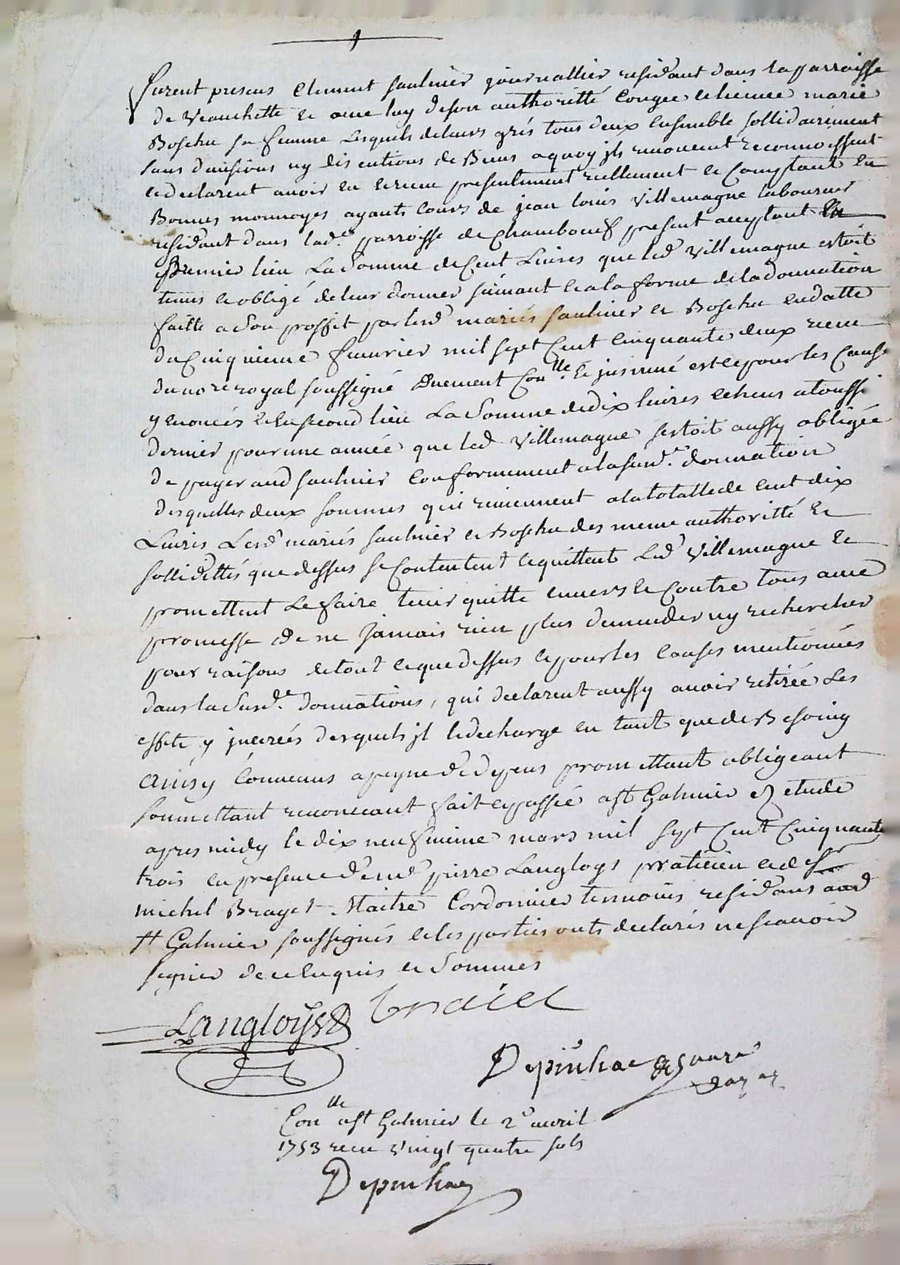 furent presens Clement faulnier journallier residant dans la parroisse
de Veauchette et avec luy de son authoritté Congée et licencée marie
Boschu sa femme lesquels de leurs grés tous deux ensemble sollidairement
sans divisions ny discutions de Biens a quoy jls renoncent reconnoissent
et declarent avoir eu et receu presentement reellement et Comptant en
Bonnes monnoyes ayants Cours de jean louis Villemagne laboureur
residant dans lad.e parroisse de Chambœuf present acceptant En
premier lieu La Somme de Cent Livres que led Villemagne estoit
tenus et obligé de leur donner suivant et a la forme de la donnation
faitte a Son proffit par lesd mariés faulnier et Boschu en datte
du Cinquieme fevrier mil sept Cent Cinquante deux receu
du no.re royal soussigné Duement Con.lle et jnsinué est et pour les Causes
y enoncés et En second lieu La Somme de dix livres echeus a toussi
dernier pour une année que led Villemagne sestoit aussy obligée
de payer aud faulnier Conformement a la susd.e donnation
desquelles deux sommes qui reviennent a la totalle de Cent dix
Livres Lesd mariés faulnier et Boschu des meme authoritté et
sollidittés que dessus se Contentent et quittent Led Villemagne et
promettent Le faire tenir quitte envers et Contre tous avec
promesse de ne Jamais rien plus demander ny rechercher
pour raisons de tout ce que dessus et pour les Causes mentionnées
dans la susd.e donnations, qui declarent aussy avoir retirée Les
effets y jnserés desquels jl le decharge en tant que de Besoing
Ainsy Convenus a peyne de depens promettant obligeant
soumettant renonceant fait et passée a St Galmier ez etude
apres midy le dix neufvieme mars mil sept Cent Cinquante
trois en presence de m.e pierre Langloys praticien et de Sr
michel Brayet Maitre Cordonnier temoins residants aud
St Galmier soussignés et les parties onts declarés ne scavoir
signer de ce Enquis et Sommés
Langloys
Depinhac
Con.lle a St Galmier le 2e avril
1753 receu Vingt quatre sols
Depinhac